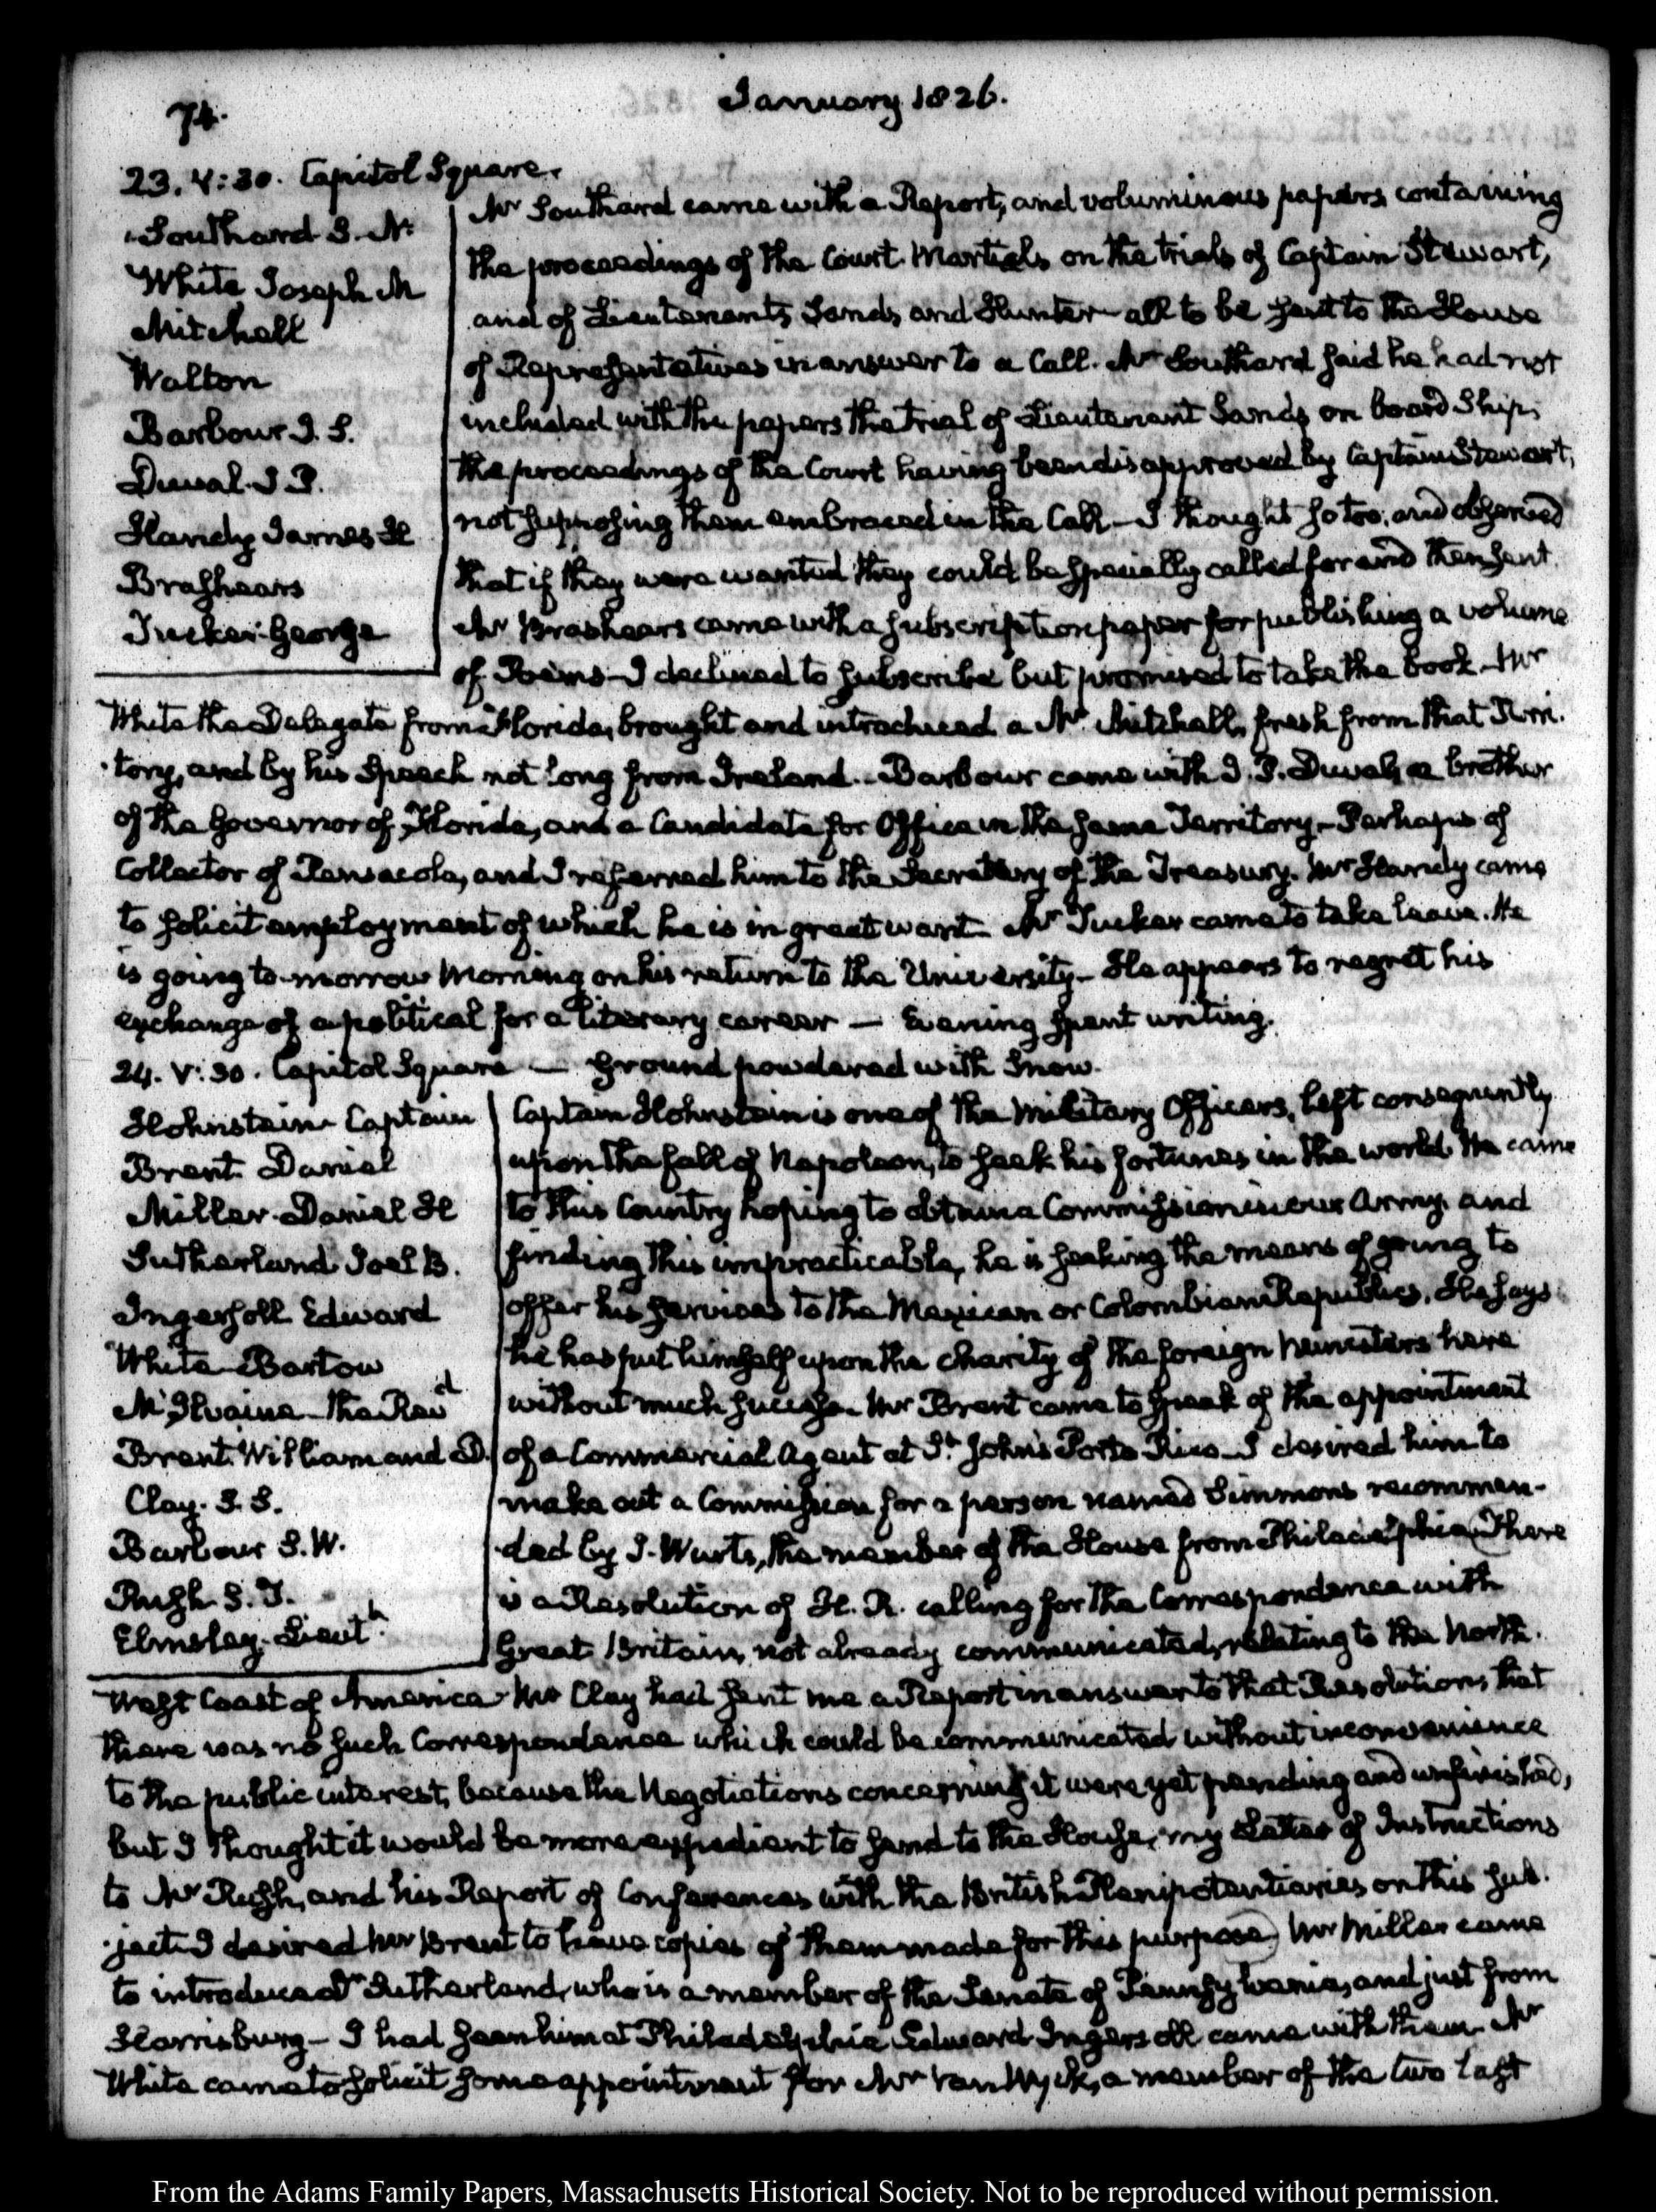 74.
January 1826.
23. V:30. Capitol Square.
Southard S. N.
White Joseph M
Mitchell
Walton
Barbour J. S.
Duval J P.
Handy James H
Brashears
Tucker George
Mr Southard came with a Report, and voluminous papers containing
the proceedings of the Court Martials on the trials of Captain Stewart,
and of Lieutenants Sands and Hunter—all to be sent to the House
of Representatives in answer to a Call. Mr Southard said he had not
included with the papers the trial of Lieutenant Sands on board Ship;
the proceedings of the Court having been disapproved by Captain Stewart,
not supposing them embraced in the Call—I thought so too, and observed
that if they were wanted they could be specially called for and then sent.
Mr Brashears came with a subscription paper for publishing a volume
of Poems—I declined to subscribe but promised to take the book—Mr
White the Delegate from Florida, brought and introduced a Mr Mitchell, fresh from that Terri-
tory, and by his speech not long from Ireland—Barbour came with J. P. Duval, a brother
of the Governor of Florida, and a Candidate for Office in the same Territory—Perhaps of
Collector of Pensacola, and I referred him to the Secretary of the Treasury. Mr Handy came
to solicit employment of which he is in great want—Mr Tucker came to take leave. He
is going to-morrow Morning on his return to the University—He appears to regret his
exchange of a political for a literary career — Evening spent writing.
24. V:30. Capitol Square — Ground powdered with Snow.
Hohnstein Captain
Brent Daniel
Miller Daniel H
Sutherland Joel B.
Ingersoll Edward
White Bartow
McIlvaine—the Revd
Brent William and D.
Clay. S. S.
Barbour S. W.
Rush S. T.
Elmsley. Lieutt.
Captain Hohnstein is one of the Military Officers, left consequently
upon the fall of Napoleon, to seek his fortunes in the world. He came
to this Country hoping to obtain a Commission in our Army, and
finding this impracticable, he is seeking the means of going to
offer his services to the Mexican or Colombian Republics. He says
he has put himself upon the charity of the foreign Ministers here
without much success. Mr Brent came to speak of the appointment
of a Commercial Agent at St. John's Porto Rico—I desired him to
make out a Commission for a person named Simmons recommen-
ded by J. Wurts, the member of the House from Philadelphia. There
is a Resolution of H. R. calling for the Correspondence with
Great Britain, not already communicated, relating to the North-
West Coast of America—Mr Clay had sent me a Report in answer to that Resolution, that
there was no such Correspondence which could be communicated without inconvenience
to the public interest, because the Negotiations concerning it were yet pending and unfinished,
but I thought it would be more expedient to send to the House, my Letter of Instructions
to Mr Rush, and his Report of Conferences with the British Plenipotentiaries on this sub-
ject. I desired Mr Brent to have copies of them made for this purpose) Mr Miller came
to introduce Dr Sutherland, who is a member of the Senate of Pennsylvania, and just from
Harrisburg—I had seen him at Philadelphia Edward Ingersoll came with them. Mr
White came to solicit some appointment for Mr Van Wyck, a member of the two last
From the Adams Family Papers, Massachusetts Historical Society. Not to be reproduced without permission.